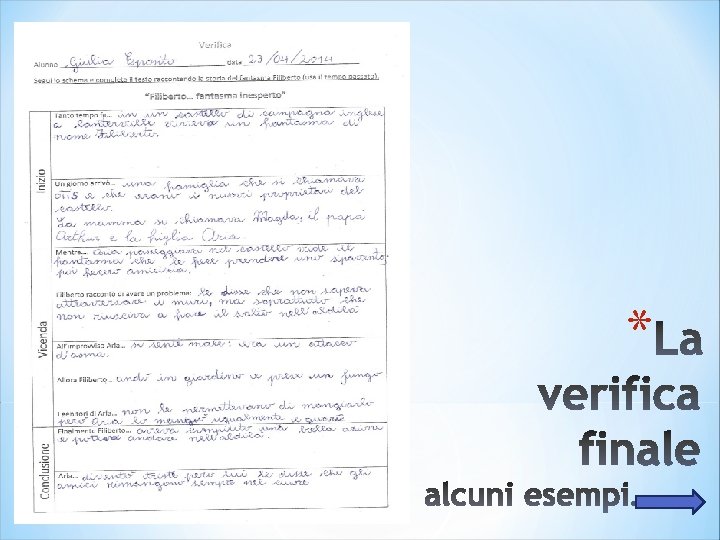 Verifica
Alunno Giulia Esposito data 23/04/2014
Segui lo schema e completa il testo raccontando la storia del fantasma Filiberto (usa il tempo passato).
"Filiberto... fantasma inesperto"
Inizio
Tanto tempo fa... in un castello di campagna inglese
a viveva un fantasma di
nome Filiberto.
Un giorno arrivò... una famiglia che si chiamava
OTIS e che erano i nuovi proprietari del
castello.
La mamma si chiamava Magda, il papà
Arthur e la figlia Aria.
Vicenda
Mentre... Aria passeggiava nel castello vide il
fantasma che le fece prendere uno spavento,
poi fecero amicizia.
Filiberto raccontò di avere un problema: le disse che non sapeva
attraversare i muri, ma sopratutto che
non riusciva a fare il salto nell'aldilà
All'improvviso Aria... si sentì male: era un attacco
d'asma.
Allora Filiberto... andò in giardino e prese un fungo
I genitori di Aria... non le permettevano di mangiarlo
però Aria lo mangiò ugualmente e guarì
Conclusione
Finalmente Filiberto... aveva compiuto una bella azione
e poteva andare nell'aldilà.
Aria... diventò triste però lui le disse che gli
amici rimangono sempre nel cuore
* La
verifica
finale
alcuni esempi.